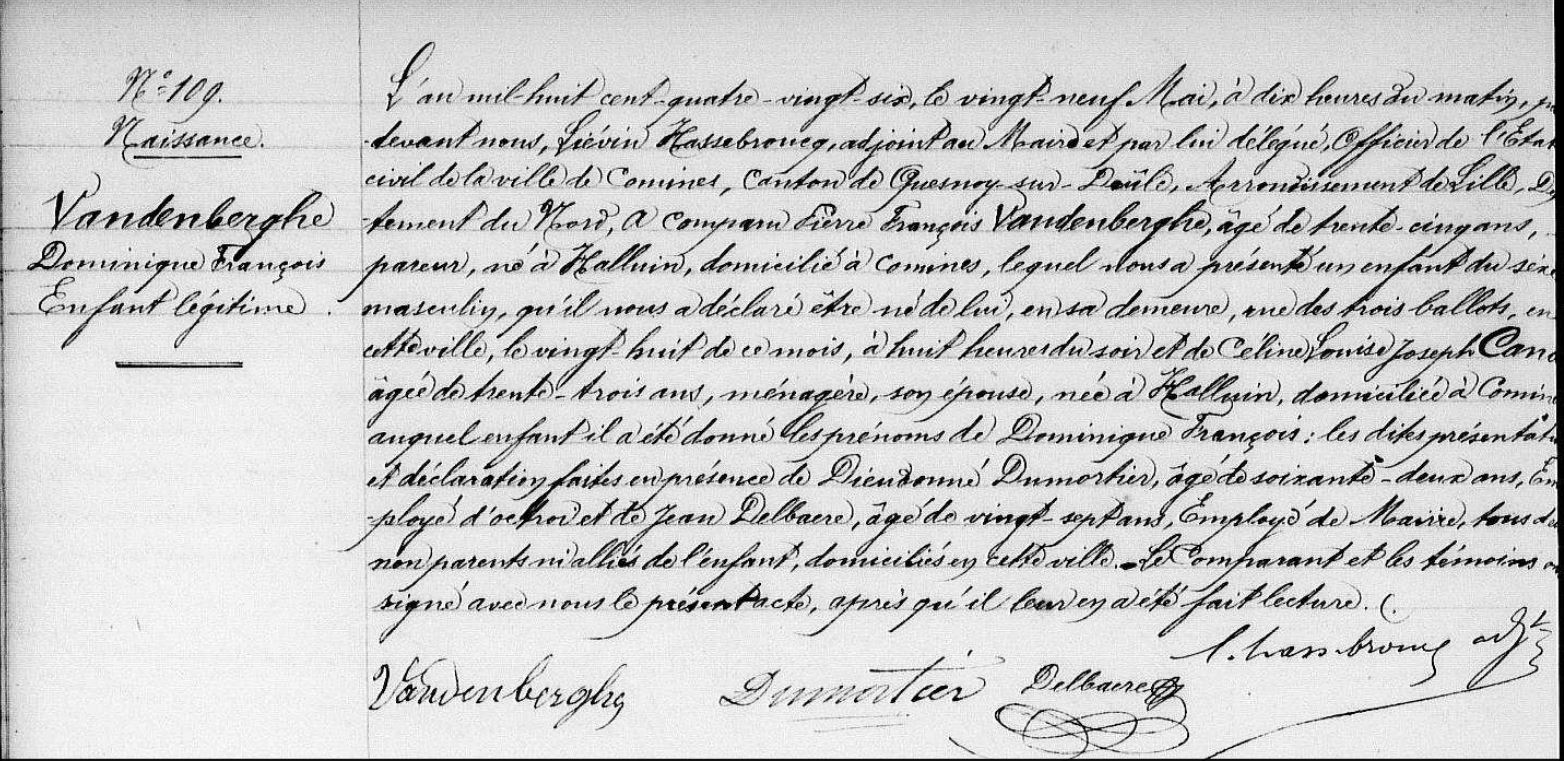 N° 109.
Naissance.
Vandenberghe
Dominique François
Enfant légitime.
L'an mil-huit cent-quatre-vingt-six, le vingt-neuf Mai, à dix heures du matin, pa
devant nous, Liévin Hassebroucq, adjoint au Maire et par lui délégué, Officier de l'Etat
civil de la ville de Comines, Canton de Quesnoy-sur-Deûle, Arrondissement de Lille, Dé
-tement du Nord, a comparu Pierre François Vandenberghe, âgé de trente-cinq ans,
pareur, né à Halluin, domicilié à Comines, lequel nous a présenté un enfant du sexe
masculin, qu'il nous a déclaré être né de lui, en sa demeure, rue des trois ballots, en
cette ville, le vingt-huit de ce mois, à huit heures du soir et de Céline Louise Joseph
âgée de trente-trois ans, ménagère, son épouse, née à Halluin, domiciliée à Comin
auquel enfant il a été donné les prénoms de Dominique François: les dites présentat
et déclaration faites en présence de Dieudonné Dumortier, âgé de soixante-deux ans, Em
-ployé d'octroi et de Jean Delbaere, âgé de vingt-sept ans, Employé de Mairie, tous d
non parents ni alliés de l'enfant, domiciliés en cette ville. Le Comparant et les témoins on
signé avec nous le présent acte, après qu'il leur en a été fait lecture. (.
L. hassebroucq adjt
Vandenberghe Dumortier Delbaere